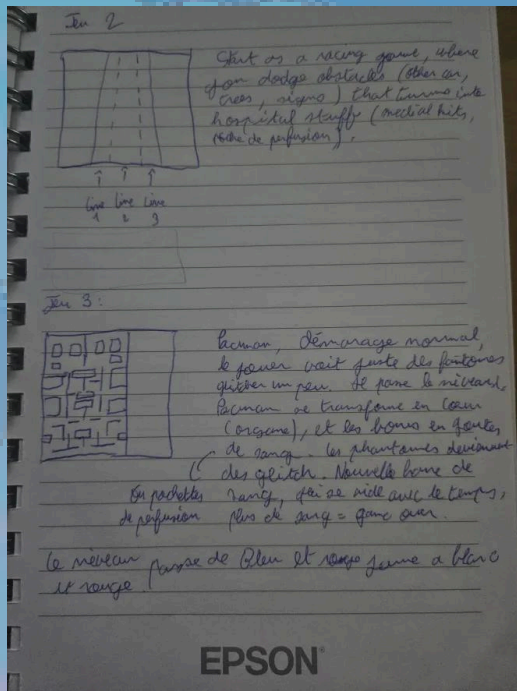 Jeu 2
Start as a racing game, where
you dodge obstacles (other car,
trees, signs) that turns into
hospital stuffs (medial kits,
de perfusion).
line line line
1 2 3
Jeu 3 :
Pacman, démarage normal,
le joueur voit juste des fantomes
glitcher un peu. Je passe le niveau,
Pacman se transforme en Coeur
(organe), et les bonus en goutes
de sang. Les phantomes deviennent
des glitch. Nouvelle barre de
sang, qui se vide avec le temps,
plus de sang = game over.
Ou pochettes
de perfusion
Le niveau passe de Bleu et jaune a blanc
et rouge.
EPSON